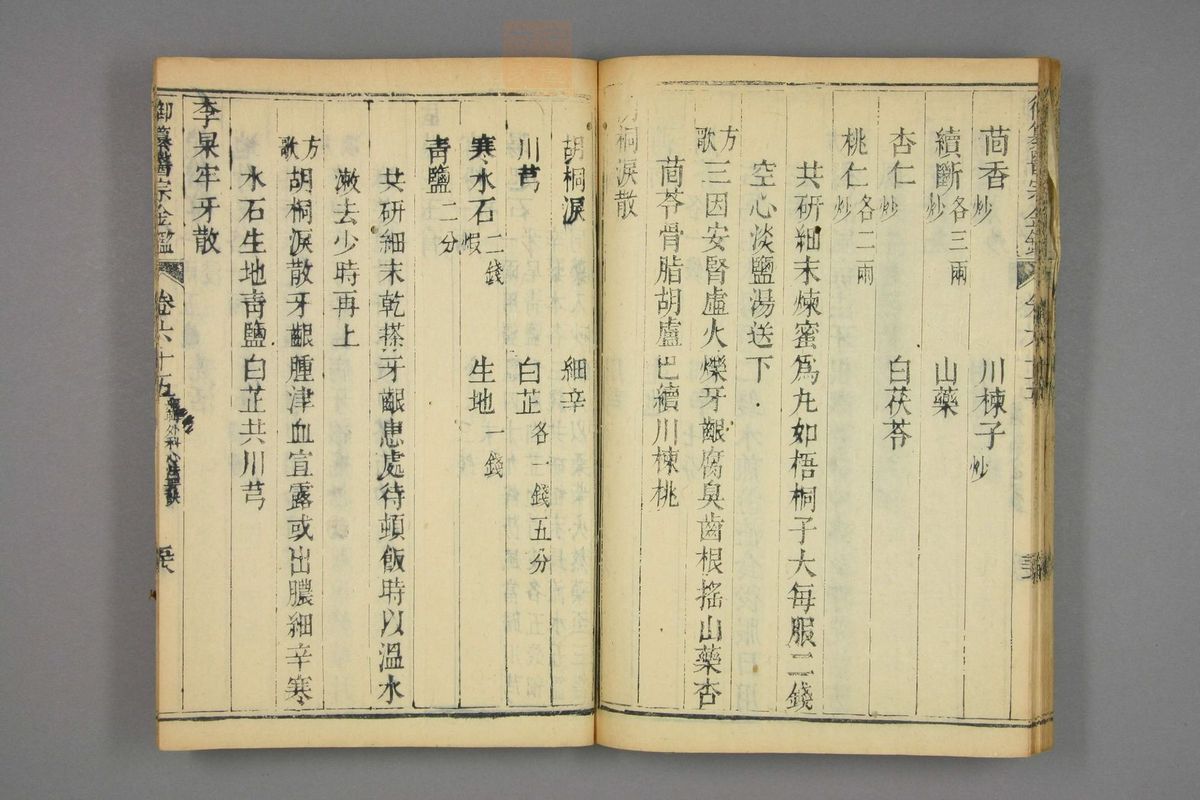 茴香炒 川楝子炒
續斷炒各三兩 山藥
杏仁 白茯苓
桃仁炒各二兩
共研細末煉蜜爲丸如梧桐子大每服二錢
空心淡鹽湯送下
方歌 三因安腎虛火爍牙齦腐臭齒根搖山藥杏
茴苓骨脂胡廬巴續川楝桃
桐淚散
胡桐淚 細辛
川芎 白芷各一錢五分
寒水石煆二錢 生地一錢
青鹽二分
共研細末乾搽牙齦患處待頓飯時以溫水
漱去少時再上
方歌 胡桐淚散牙齦腫津血宣露或出膿細辛寒
水石生地青鹽白芷共川芎
李杲牢牙散
御纂醫宗金鑑 卷六十五 外科心法要訣